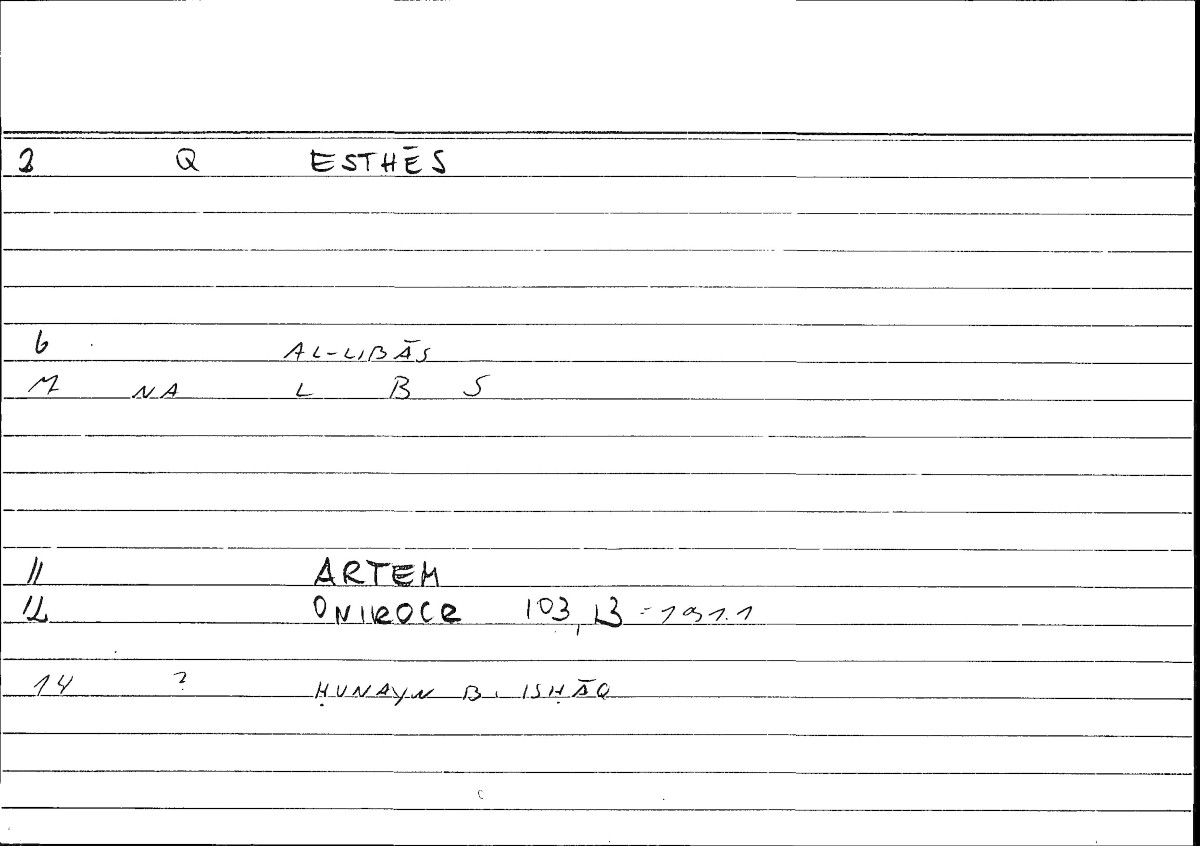 2 Q ESTHĒS
6 AL-LIBĀS
M NA L B S
11 ARTEM
12 ONIROCR 103, 13 = 191.1
14 ? ḤUNAYN B. ISḤĀQ